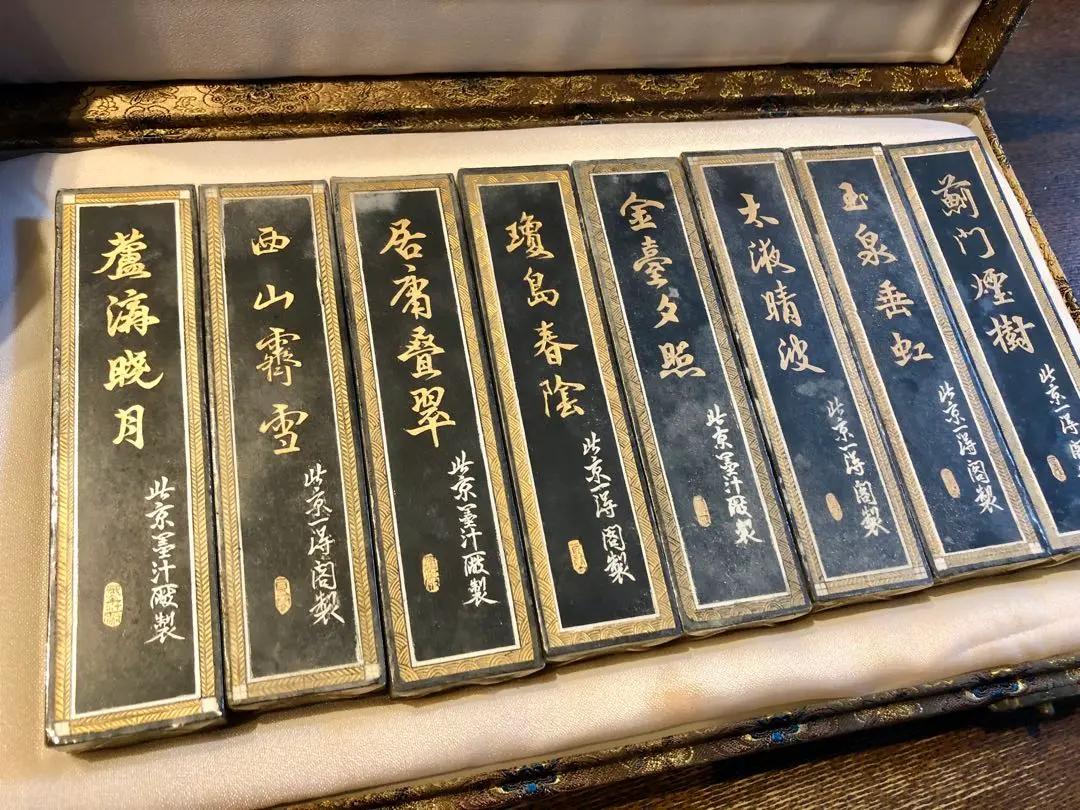 蘆溝晓月
北京墨汁厰製
西山霽雪
北京一得阁製
居庸叠翠
北京墨汁厰製
瓊島春陰
北京一得阁製
金臺夕照
北京墨汁厰製
太液晴波
北京一得阁製
玉泉垂虹
北京一得阁製
薊門煙樹
北京一得阁